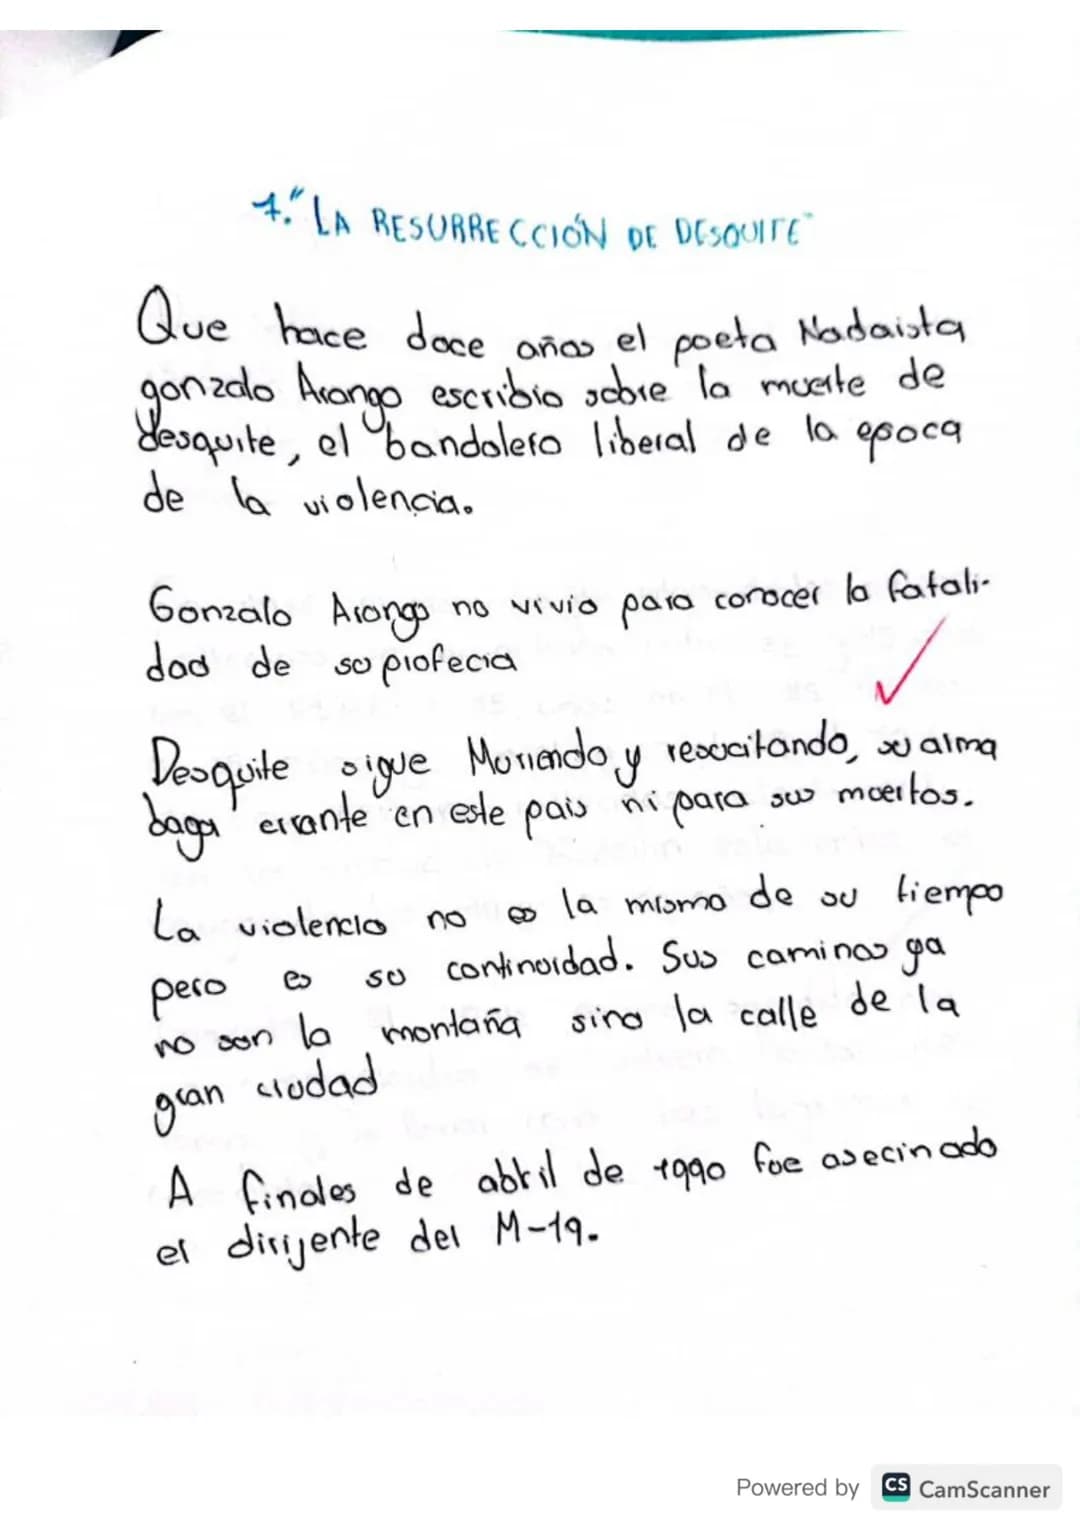 7."LA RESURRECCIÓN DE DESQUITE"
Que hace doce años el poeta Nadaista
gonzalo Arango escribio sobre la muerte de
desquite, el bandolero liberal de la epoca
de la violencia.
Gonzalo Arango no vivio para conocer la fatali-
dad de su profecia
Desquite sigue Muriendo y resucitando, su alma
baga errante en este pais ni para sus muertos.
La violencia no es la misma de su tiempo
pero es su continuidad. Sus caminos ya
no son la montaña sino la calle de la
gran ciudad
A finales de abril de 1990 fue asecinado
el dirijente del M-19.
Powered by CS CamScanner